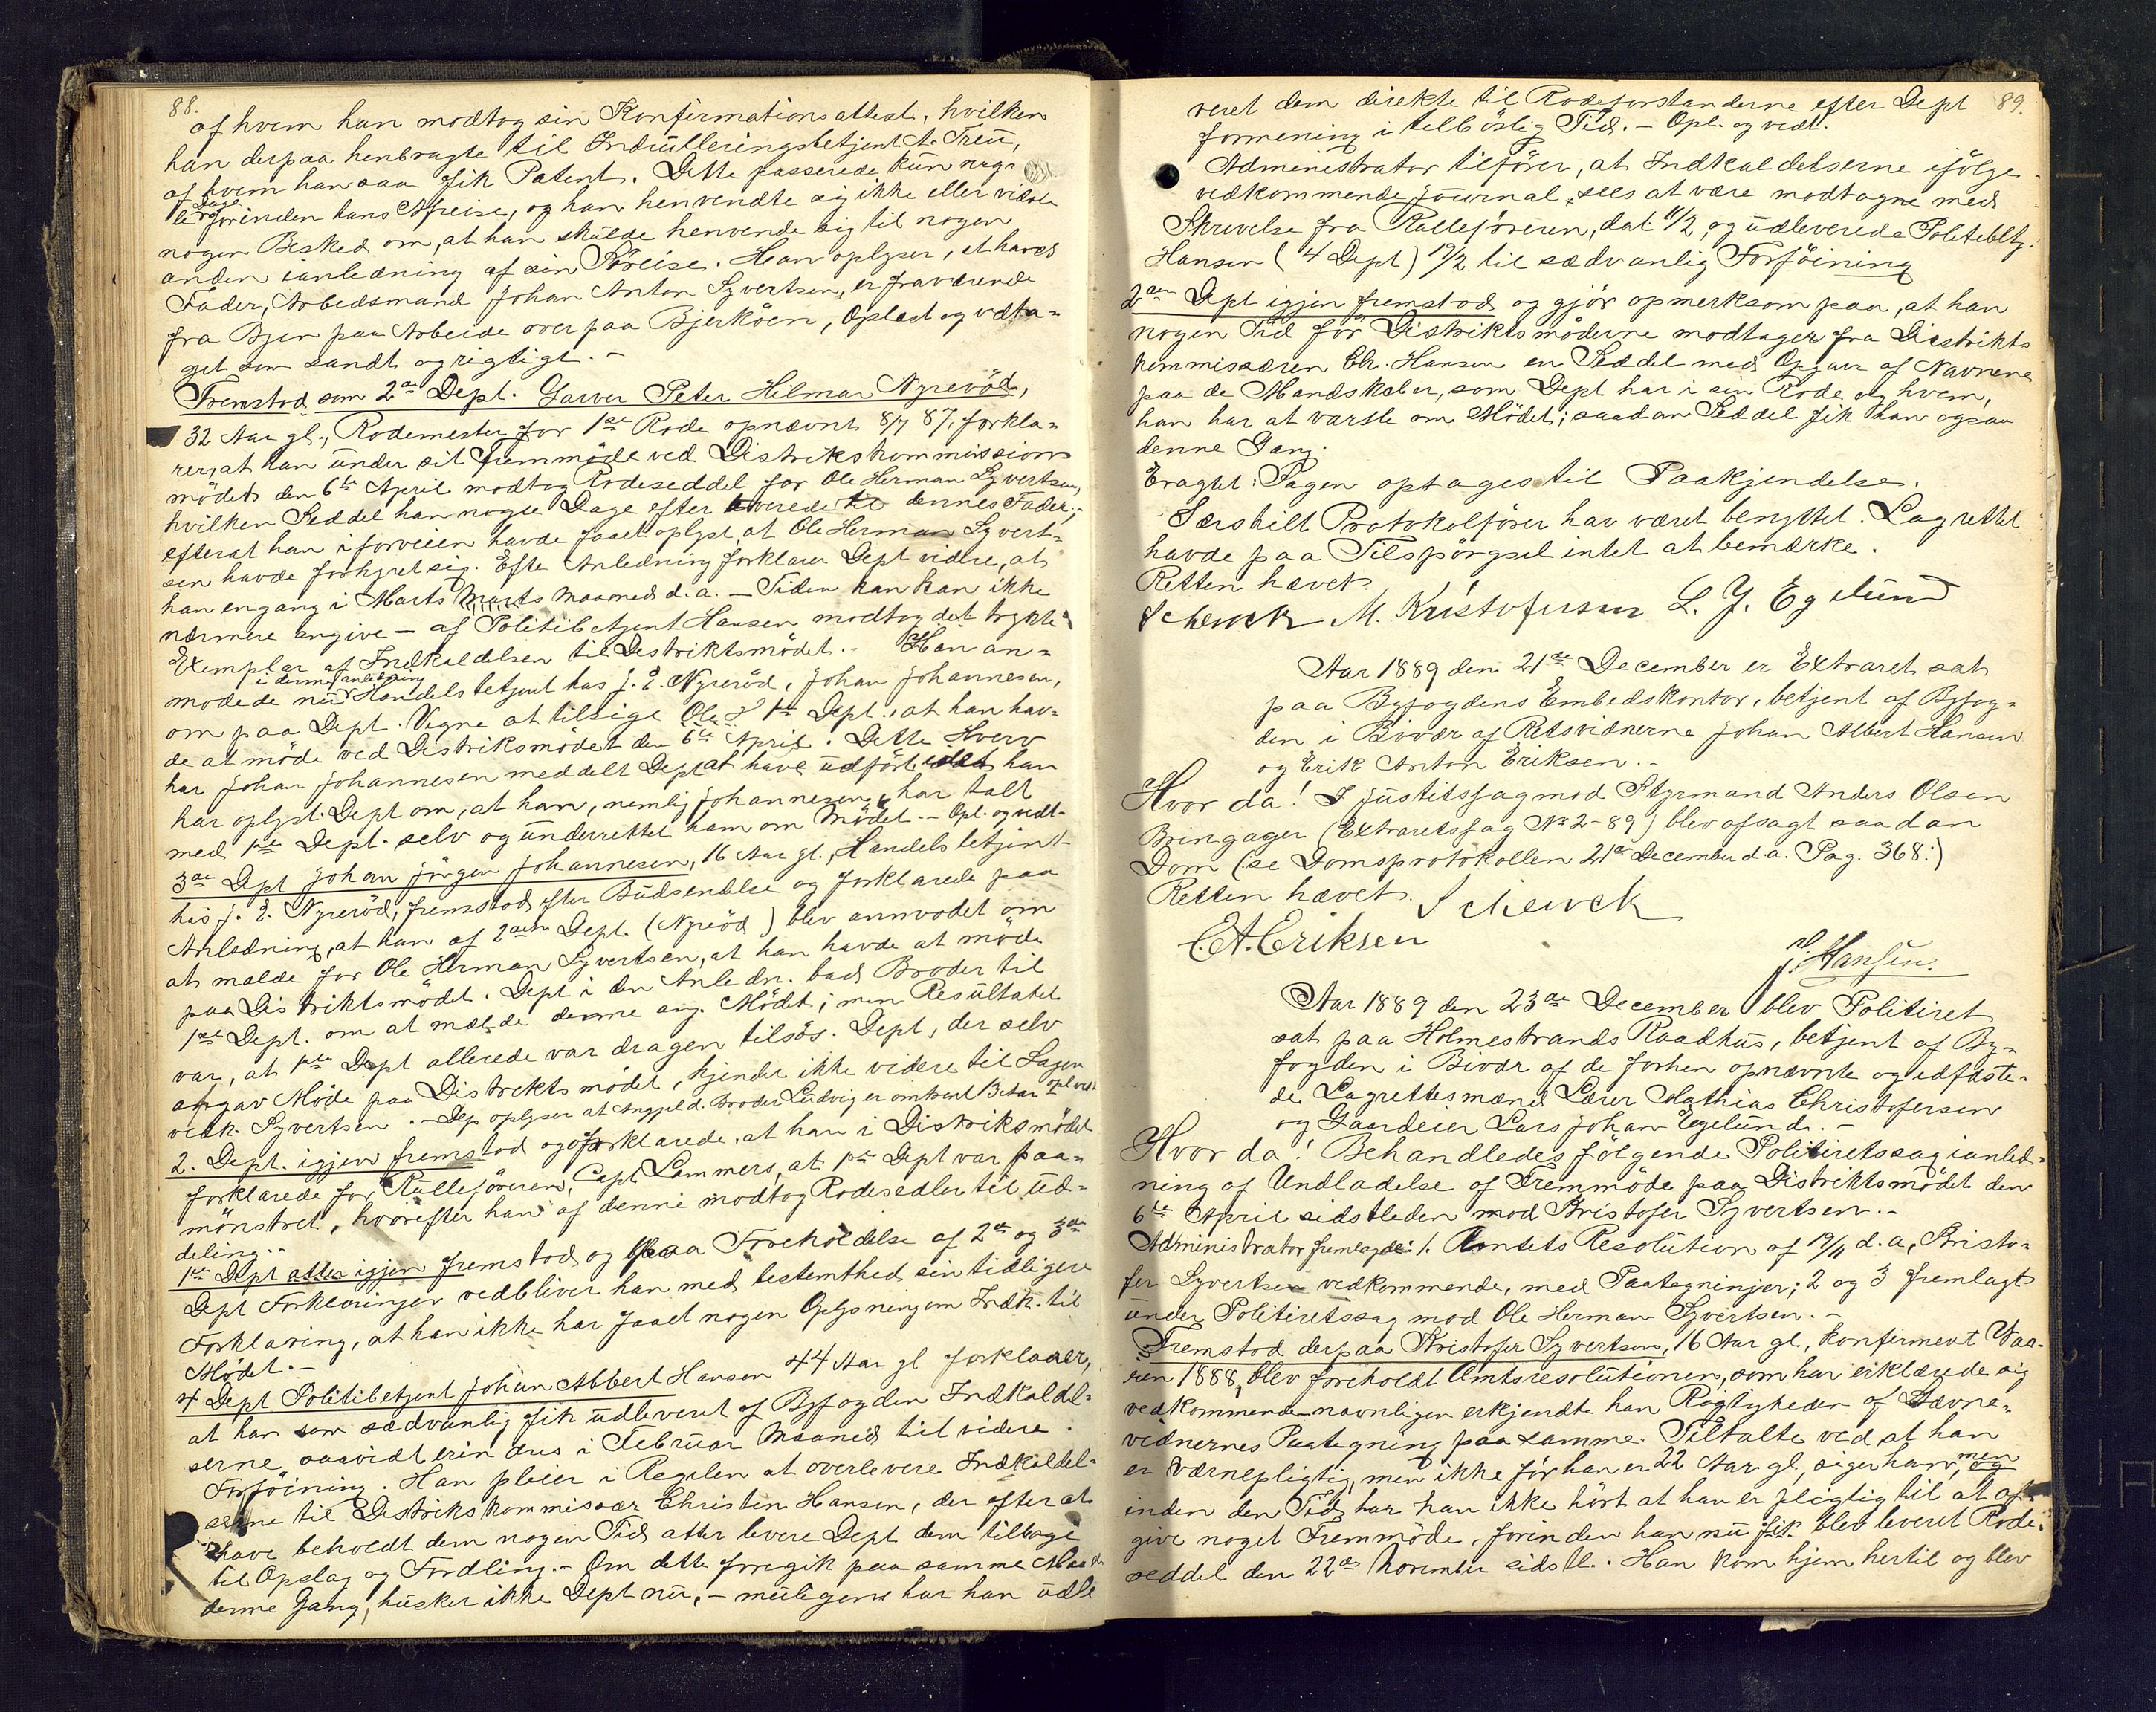 88.
af hvem han modtog sin Konfirmationsattest, hvilken
han derpaa henbragte til Indrulleringsbetjent A. Treu,
af hvem han saa fik Patent. Dette passerede kun nog-
le Dage forinden hans Afreise, og han henvendte sig ikke eller vidste
nogen Besked om, at han skulde henvende sig til nogen
anden ianledning af sin Söreise. Han oplyser, at hans
Fader, Arbeidsmand Johan Anton Syvertsen, er fraværende
fra Byen paa Arbeide over paa Bjerköen, Oplæst og vedta-
get som sandt og rigtigt. -
Fremstod som 2den Dept. Garver Peter Hilmar Nyreröd,
32 Aar gl., Rodemester for 1ste Rode opnævnt 8/7 87, forkla-
rer, at han under sit Fremmöde ved Distriktskommissions
mödet den 6te April modtog Rodeseddel for Ole Herman Syvertsen,
hvilken Seddel han nogle Dage efter leverede til dennes Fader,
efterat han i forveien havde faaet oplyst, at Ole Herman Syvert-
sen havde forhyret sig. Efter Anledning forklarer Dept videre, at
han engang i Marts Marts Maaned d. a. - Tiden kan han ikke
nærmere angive - af Politibetjent Hansen modtog det trykte
Exemplar af Indkaldelsen til Distriktsmödet. - Han an-
modede nu i denne anledning Handelsbetjent hos J. E. Nyreröd, Johan Johannesen,
om paa Dept. Vegne at tilsige Ole 1ste Dept., at han hav-
de at möde ved Distriktsmödet den 6te April. Dette Hverv
har Johan Johannesen meddelt Dept at have udfört idet han
har oplyst Dept om, at han, nemlig Johannesen, har talt
med 1ste Dept. selv og underrettet ham om Mödet. - Opl. og vedt.
3die Dept Johan Jörgen Johannesen, 16 Aar gl., Handelsbetjent
hos J. E. Nyreröd, fremstod efter Budsendelse og forklarede paa
Anledning, at han af 2den Dept. (Nyreöd) blev anmodet om
at melde for Ole Herman Syvertsen, at han havde at möde
paa Distriktsmödet. Dept i den Anledn. bad Broder til
1ste Dept. om at mælde denne ang. Mödet; men Resultatet
var, at 1ste Dept allerede var dragen tilsös. Dept, der selv
angav Möde paa Distriktsmödet, kjender ikke videre til Sagen
vedk. Syvertsen. - Dep oplyser at Angjeld. Broder Ludvig er omtrent 13 Aar opl vedt
2. Dept. igjen fremstod og forklarede, at han i Distriktsmödet
forklarede for Rulleföreren, Capt Lammers, at 1ste Dept var paa-
mönstret, hvorefter han af denne modtog Rodesedler til Ud-
deling. -
1ste Dept atter igjen fremstod og paa Foreholdelse af 2den og 3die
Dept Forklaringer vedbliver han med bestemthed sin tidligere
Forklaring, at han ikke har faaet nogen Oplysning om Indk. til
Mödet. -
4 Dept Politibetjent Johan Albert Hansen 44 Aar gl forklarer,
at han som sædvanlig fik udleveret af Byfogden Indkaldel-
serne saavidt erindres i Februar Maaned til videre
Forföining. Han pleier i Regelen at overlevere Indkaldel-
serne til Distriktskommissær Christen Hansen, der efter at
have beholdt dem nogen Tid atter levere Dept dem tilbage
til Opslag og Fordling. - Om dette foregik paa samme Maade
denne Gang, husker ikke Dept nu, - muligens har han udle
89.
veret dem direkte til Rodeforstanderne efter Dept
formening i tilbörlig Tid. - Opl. og vedt.
Administrator tilförer, at Indkaldelserne ifölge
vedkommende Journal, sees at være modtagne med
Skrivelse fra Rulleföreren, dat 11/2, og udleverede Politibtj.
Hansen (4 Dept) 19/2 til sædvanlig Forföining
2den Dept igjen fremstod og gjör opmerksom paa, at han
nogen Tid för Distriktsmöderne modtager fra Distrikts
kommissæren Chr. Hansen en Seddel med Opgave af Navnene
paa de Mandskaber, som Dept har i sin Rode og hvem,
han har at varsle om Mödet; saadan Seddel fik han ogsaa
denne Gang.
Eragtet: Sagen optages til Paakjendelse.
Særskilt Protokolförer har været benyttet. Lagrettet
havde paa Tilspörgsel intet at bemærke.
Retten hævet.
Schenck M. Kristofersen L. J. Egelund
Aar 1889 den 21de December er Extraret sat
paa Byfogdens Embedskontor, betjent af Byfog-
den i Bivær af Retsvidnerne Johan Albert Hansen
og Erik Anton Eriksen. -
Hvor da! I Justitssag mod Styrmand Anders Olsen
Bringager (Extraretssag No 2-89) blev afsagt saadan
Dom (se Domsprotokollen 21de December d. a. Pag. 368:)
Retten hævet. Schenck
E. A. Eriksen
J. Hansen.
Aar 1889 den 23de December blev Politiret
sat paa Holmestrands Raadhus, betjent af By-
fogden i Bivær af de forhen opnævnte og edfæste-
de Lagrettesmænd Lærer Mathias Christofersen
og Gaardeier Lars Johan Egelund. -
Hvor da! Behandledes fölgende Politiretssag ianled-
ning af Undladelse af Fremmöde paa Distriktsmödet den
6te April sidstleden mod Kristofer Syvertsen. -
Administrator fremlagde: 1. Amtets Resolution af 19/11 d. a, Kristo-
fer Syvertsen vedkommende, med Paategninger; 2 og 3 fremlagt
under Politiretssag mod Ole Herman Syvertsen. -
Fremstod derpaa Kristofer Syvertsen, 16 Aar gl, konfirmert Vaa-
ren 1888, blev foreholdt Amtsresolutionen, som han erklærede sig
vedkommende navnligen erkjendte han Rigtigheden af Stævne-
vidnernes Paategning paa samme. Tiltalte ved at han
er værnepligtig, men ikke för han er 22 Aar gl, siger han, men og
inden den Tid har han ikke hört at han er pligtig til at af-
give noget Fremmöde, forinden han nu fik blev leveret Rode-
seddel den 22de November sidstl. Han kom hjem hertil og blev